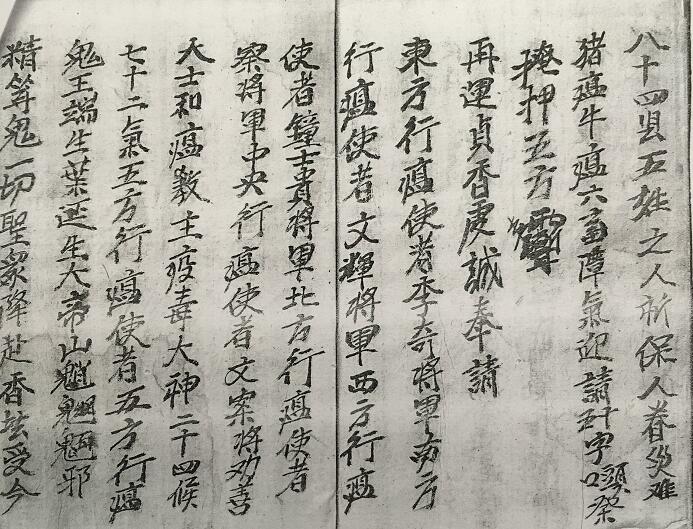 八十四县五姓之人祈保人眷災难
猪瘟牛瘟六畜障氣迎請 字 祭
押五方
再運貞香虔誠奉請
東方行瘟使者李奇將軍南方
行瘟使者文輝將軍西方行瘟
使者鐘士貴將軍北方行瘟使者
察將軍中央行瘟使者文案將劝善
大士和瘟教主疫毒大神二十四候
七十二氣五方行瘟使者五方行瘟
鬼王端生葉延生大帝山魈魍魎邪
精等鬼一切聖眾降赴香筵受今